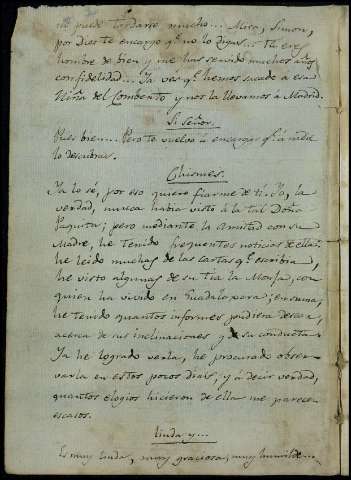 no puede tardarse mucho... Mira, Simon,
por Dios te encargo q.e no lo digas... tu eres
hombre de bien y me has servido muchos años
con fidelidad... Ya ves q.e hemos sacado a esa
Niña del Combento y nos la llevamos à Madrid.
Si Señor.
Pues bien... Pero te vuelvo à encargar q.e à nadie
lo descubras.
Chismes.
Ya lo se, por eso quiero fiarme de ti. Yo, la
verdad, nunca habia visto à la tal Doña
Paquita; pero mediante la Amistad con su
Madre, he tenido frequentes noticias de ella:
he leido muchas de las cartas q.e escribia,
he visto algunas de su tia la Monja, con
quien ha vivido en Guadalaxara; en suma,
he tenido quantos informes pudiera desear,
acerca de sus inclinaciones y su conducta.
Ya he logrado verla, he procurado obser-
varla en estos pocos dias, y à decir verdad,
quantos elogios hicieron de ella me parecen
escasos.
Linda y...
Es muy linda, muy graciosa, muy humilde...